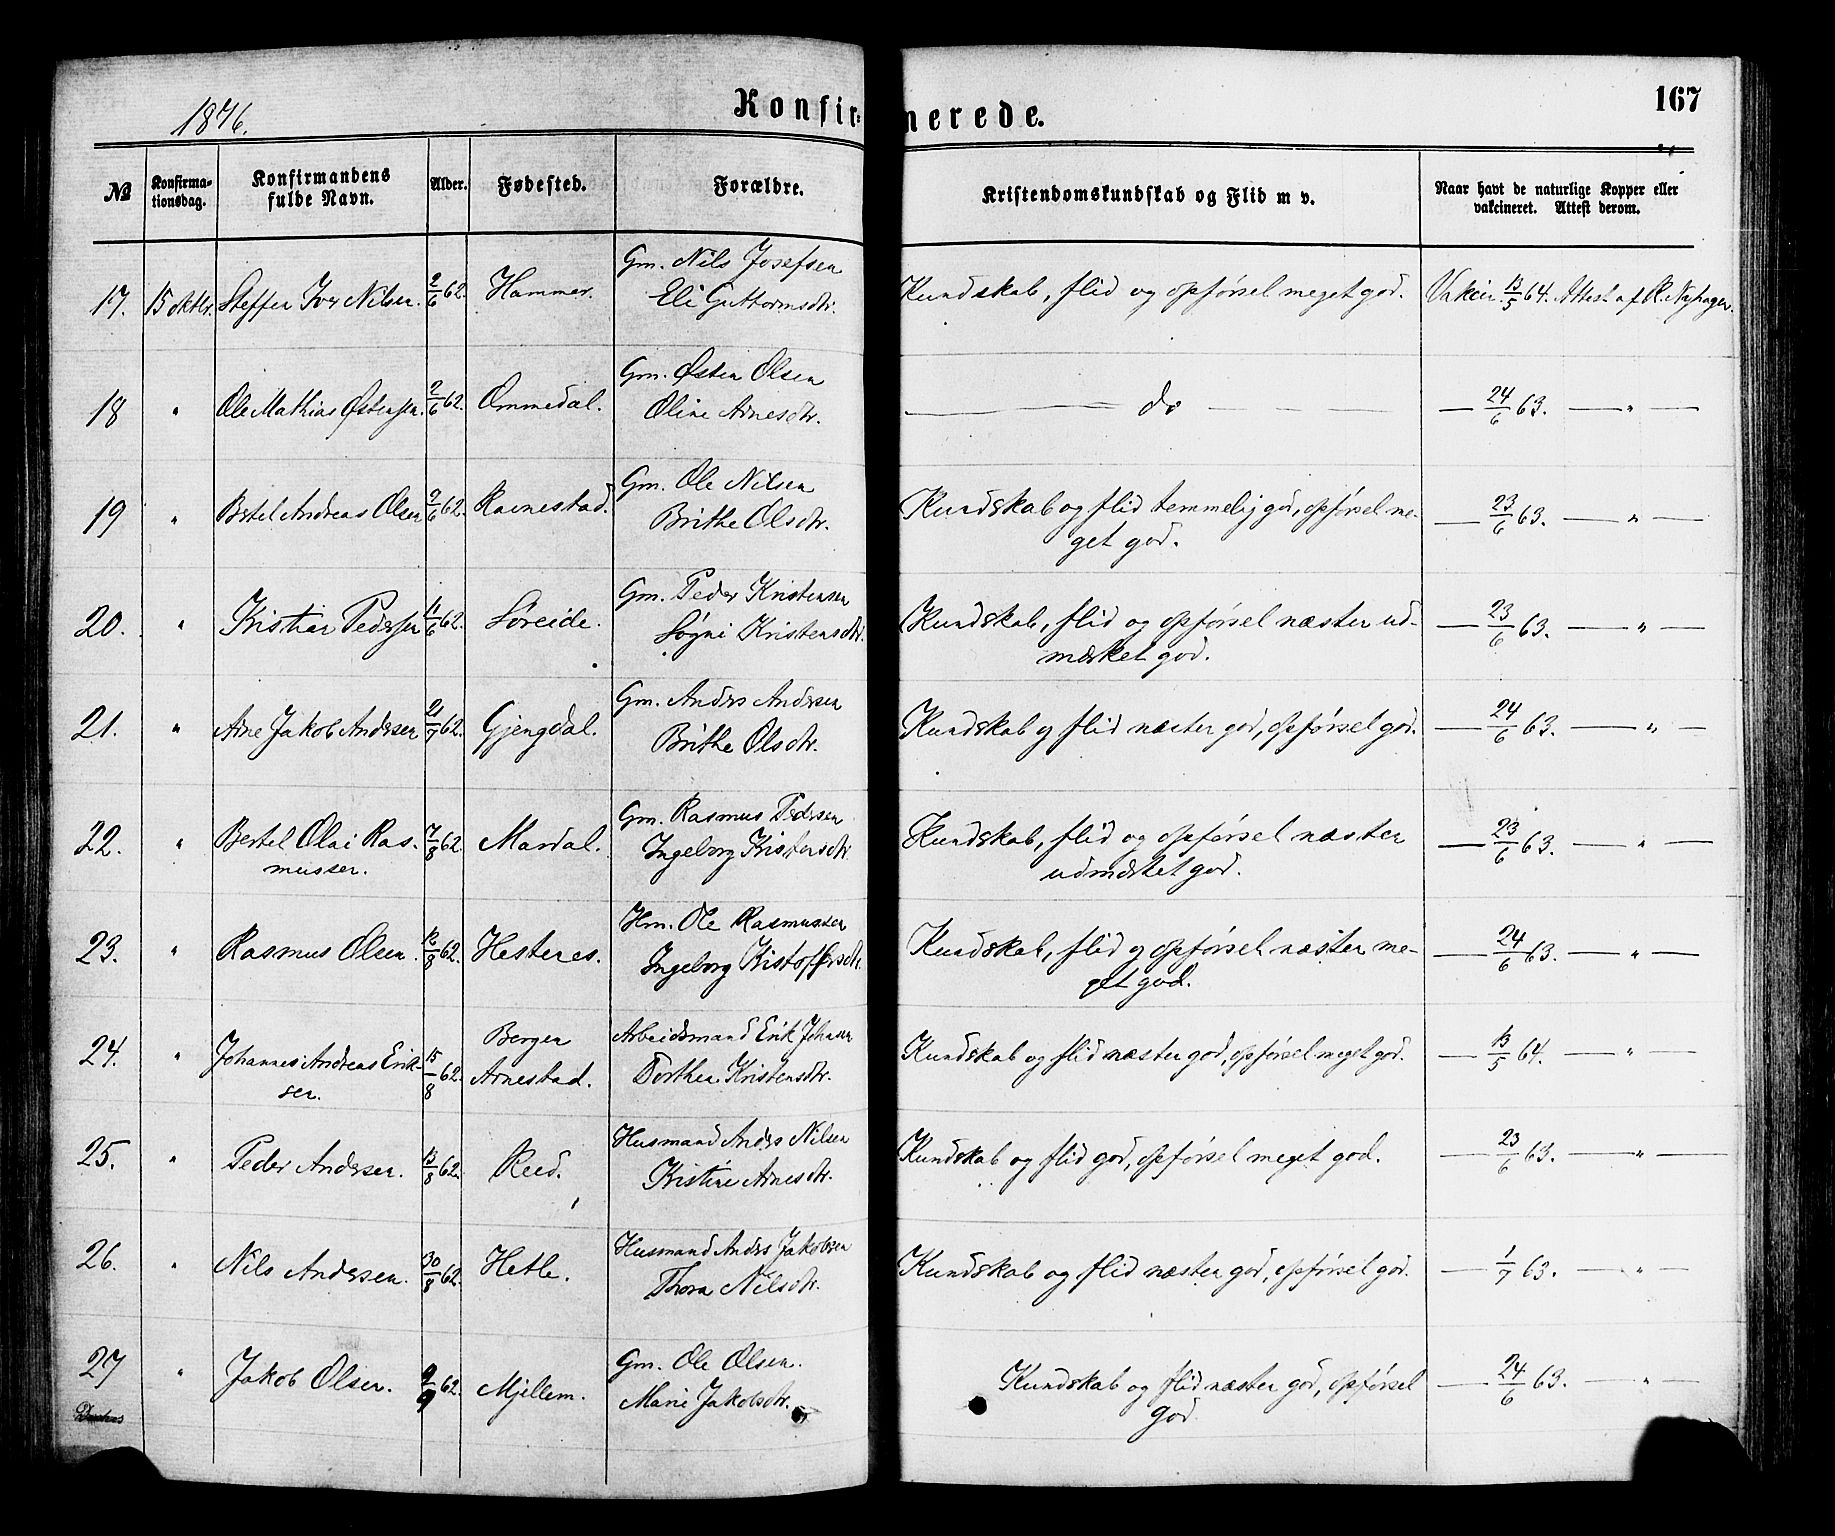 1876.
Konfirmerede.
167
№
Konfirma-
tionsdag.
Konfirmandens
fulde Navn.
Alder.
Fødested.
Forældre.
Kristendomskundskab og Flid m v.
Naar havt de naturlige Kopper eller
vakcineret. Attest derom.
17. 15 oktbr. Steffen Iver Nilsen. 2/6 62. Hammer. Gm. Nils Josefsen Kundskab, flid og opførsel meget god. Vakcin. 13/5 64. Attest af R. Nyhagen.
Eli Guttormsdtr.
18 " Ole Mathias Østensen. 2/6 62. Ommedal. Gm. Østen Olsen — do — — 24/6 63. — " —
Oline Arnesdtr.
19 " Bertel Andreas Olsen 9/6 62. Ravnestad. Gm. Ole Nilsen Kundskab og flid temmelig god, opførsel me- — 23/6 63. — " —
Brithe Olsdtr. get god.
20. " Kristian Pedersen 11/6 62. Søreide. Gm. Peder Kristensen Kundskab, flid og opførsel næsten ud- — 23/6 63. — " —
Søgni Kristensdtr. mærket god.
21. " Arne Jakob Andersen 21/7 62. Gjengdal. Gm. Anders Andersen Kundskab og flid næsten god, opførsel god. — 24/6 63. — " —
Brithe Olsdtr.
22. " Bertel Olai Ras- 7/8 62. Mardal. Gm. Rasmus Pedersen Kundskab, flid og opførsel næsten — 23/6 63. — " —
mussen. Ingeborg Kristensdtr. udmærket god.
23. " Rasmus Olsen. 12/8 62. Hestenes. Hm. Ole Rasmussen Kundskab, flid og opførsel næsten me- — 24/6 63. — " —
Ingeborg Kristoffersdtr. get god.
24. " Johannes Andreas Erik- 15/8 62. Bergen Arbeidsmand Erik Johnsen Kundskab og flid næsten god, opførsel meget god. — 13/5 64. — " —
sen. Arnestad. Dorthea Kristensdtr.
25. " Peder Andersen. 13/8 62. Reed. Husmand Anders Nilsen Kundskab og flid god, opførsel meget god. — 23/6 63. — " —
Kristine Arnesdtr.
26. " Nils Andersen. 30/8 62. Hetle. Husmand Anders Jakobsen Kundskab og flid næsten god, opførsel god. — 1/7 63. — " —
Thora Nilsdtr.
27 " Jakob Olsen. 9/9 62. Mjellem. Gm. Ole Olsen. Kundskab og flid næsten god, opførsel — 24/6 63. — " —
Marie Jakobsdtr. god